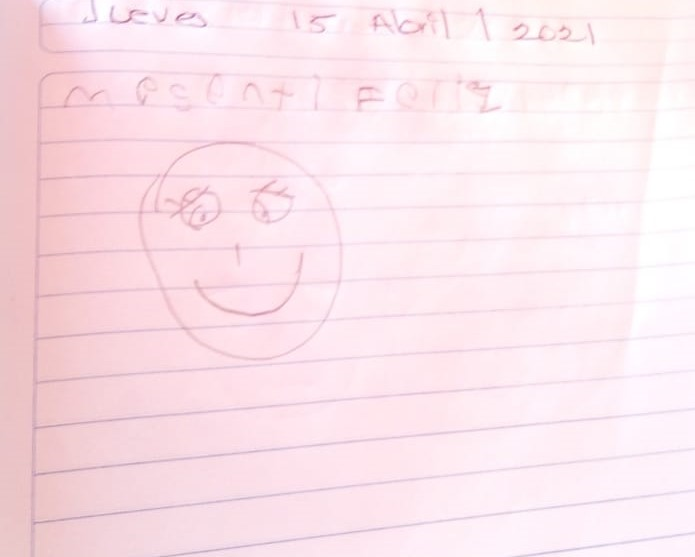 Jueves 15 Abril / 2021
me senti Feliz